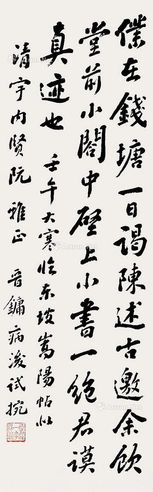 僕在錢塘一日謁陳述古邀余飲
堂前小閣中壁上小書一絕君謨
真迹也 壬午大寒臨東坡嵩陽帖似
清宇內賢阮雅正 晉鏞病後試腕